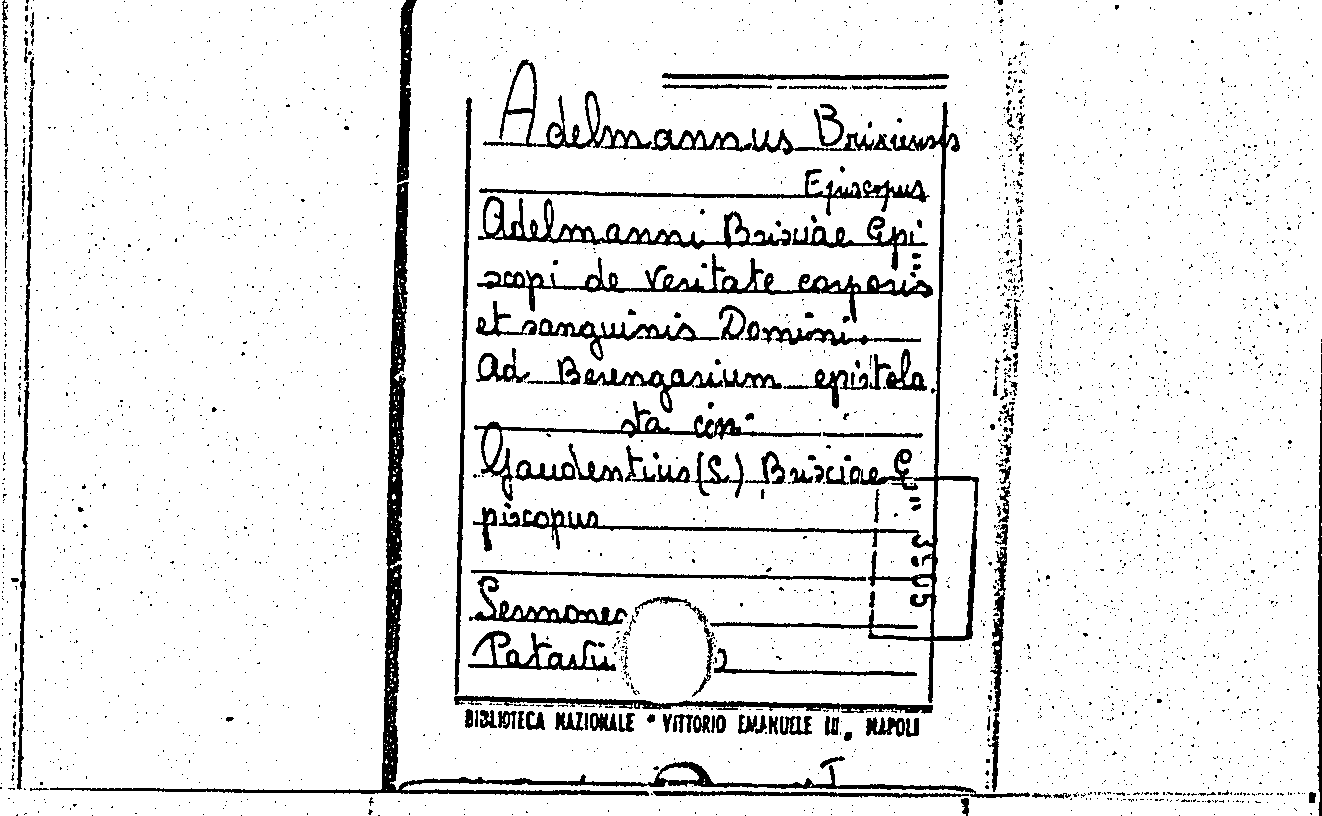 Adelmannus Brixiensis
Episcopus
Adelmanni Brixiae Epi
scopi de Veritate corporis
et sanguinis Domini.
Ad Berengarium epistola.
sta con
Gaudentius (S.) Brixiae E
piscopus
Sermones
BIBLIOTECA NAZIONALE * VITTORIO EMANUELE III, NAPOLI